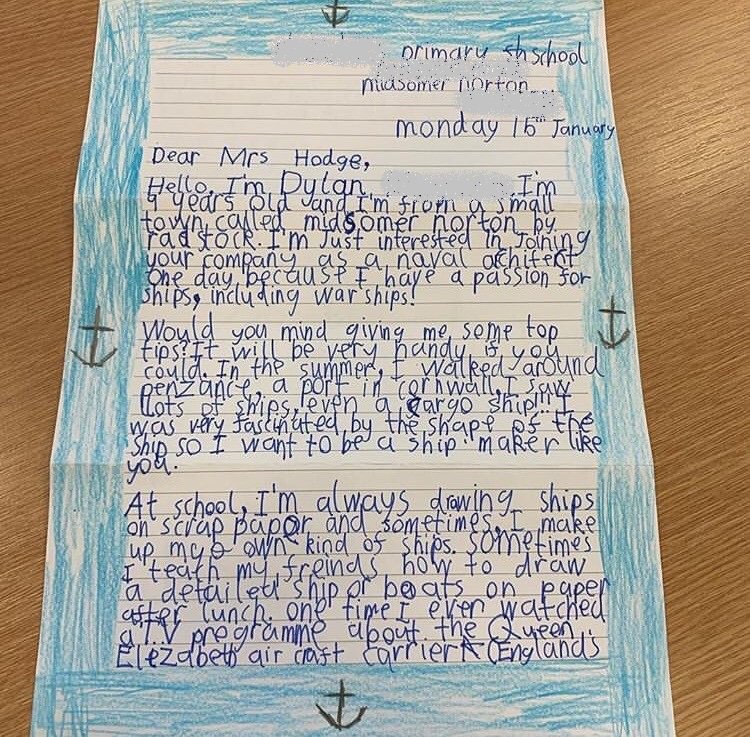 primary school
midsomer norton
monday 16th January
Dear Mrs Hodge,
Hello, I'm Dylan I'm
9 years old and I'm from a small
town called midsomer norton by
radstock. I'm Just interested in joining
your company as a naval architect
one day because I have a passion for
ships, including war ships!
Would you mind giving me some top
tips? It will be very handy if you
could. In the summer, I walked around
penzance, a port in cornwall. I saw
lots of ships, even a cargo ship! I
was very fascinated by the shape of the
ship so I want to be a ship maker like
you.
At school, I'm always drawing ships
on scrap paper and sometimes, I make
up my own kind of ships. sometimes
I teath my freinds how to draw
a detailed ship or boats on paper
after lunch. one time I ever watched
a T.V programme about the Queen
Elezabeth air craft carrier (England's